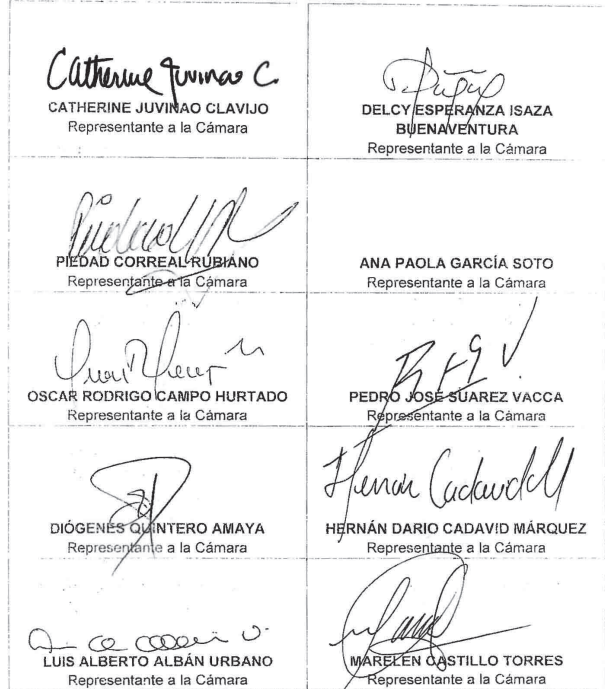 Catherine Juvinao C.
CATHERINE JUVINAO CLAVIJO
Representante a la Cámara
DELCY ESPERANZA ISAZA
BUENAVENTURA
Representante a la Cámara
PIEDAD CORREAL RUBIANO
Representante a la Cámara
ANA PAOLA GARCÍA SOTO
Representante a la Cámara
OSCAR RODRIGO CAMPO HURTADO
Representante a la Cámara
PEDRO JOSÉ SUAREZ VACCA
Representante a la Cámara
DIÓGENES QUINTERO AMAYA
Representante a la Cámara
Hernan Cadavid
HERNÁN DARIO CADAVID MÁRQUEZ
Representante a la Cámara
LUIS ALBERTO ALBÁN URBANO
Representante a la Cámara
MARELEN CASTILLO TORRES
Representante a la Cámara